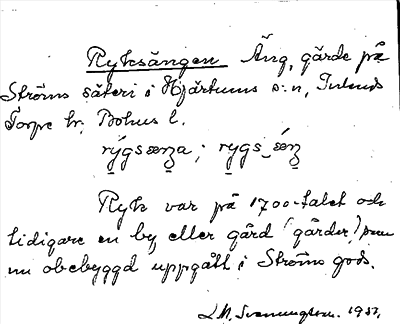 Ryksängen Äng, gärde på
Ströms säteri i Hjärtums s:n, Inlands
Torpe hr, Bohus l.
rýgsæŋa; rygs_ǽŋ
Ryk var på 1700-talet och
tidigare en by eller gård (gårdar) som
nu obebyggd uppgått i Ströms gods.
1933.